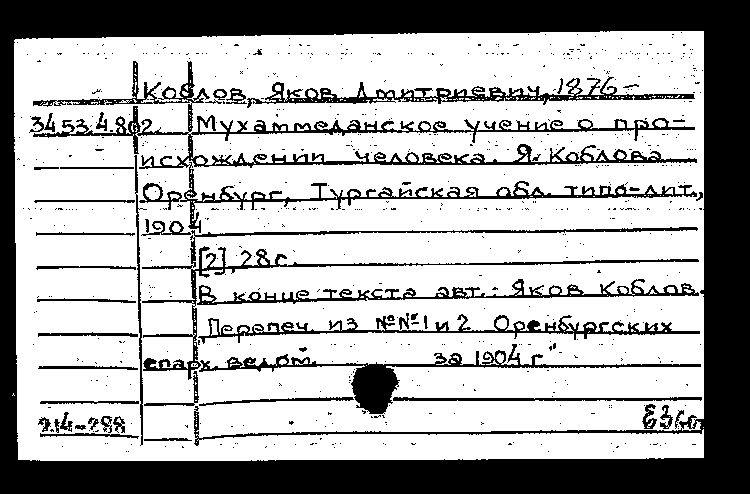 Коблов, Яков Дмитриевич, 1876-
3453.4.802. Мухаммеданское учение о про-
исхождении человека. Я. Коблова
Оренбург, Тургайская обл. типо-лит.,
1904.
[2], 28 с.
В конце текста авт.: Яков Коблов.
"Перепеч. из №№ 1 и 2 Оренбургских
епарх. ведом. за 1904 г."
214-288